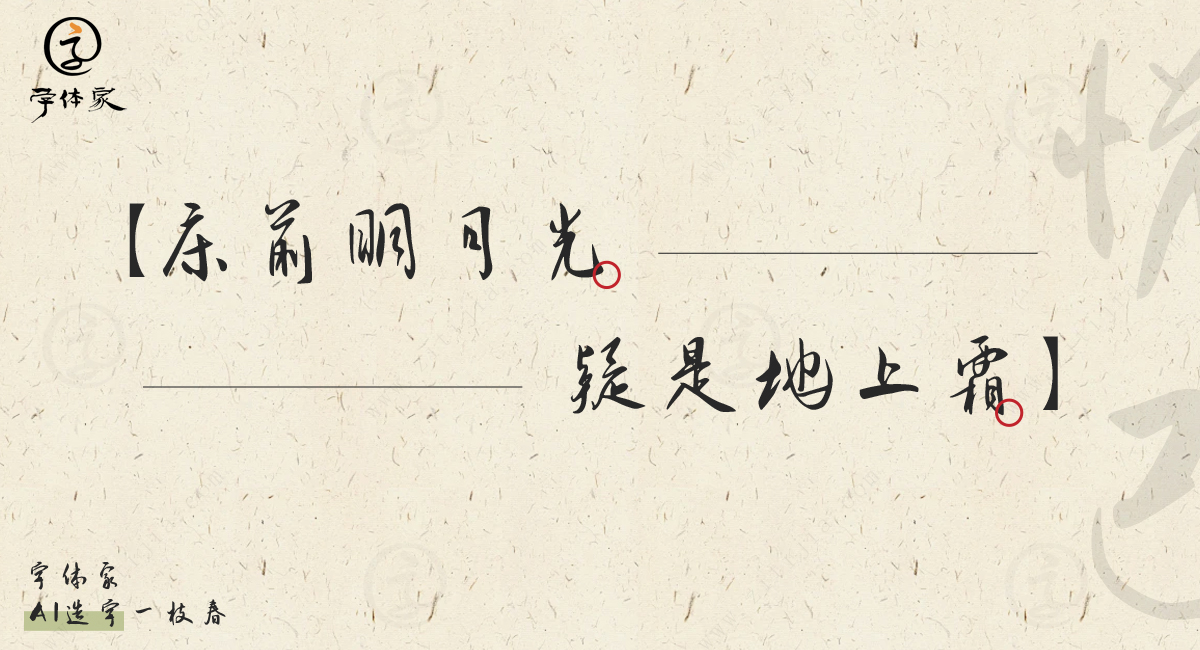 字体家
【床前明月光。
疑是地上霜。】
字体家
AI造字一枝春